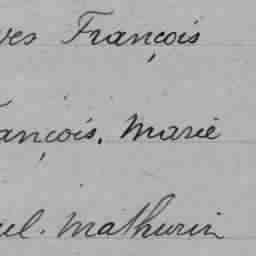 ves François
ançois, Marie
el. Mathurin